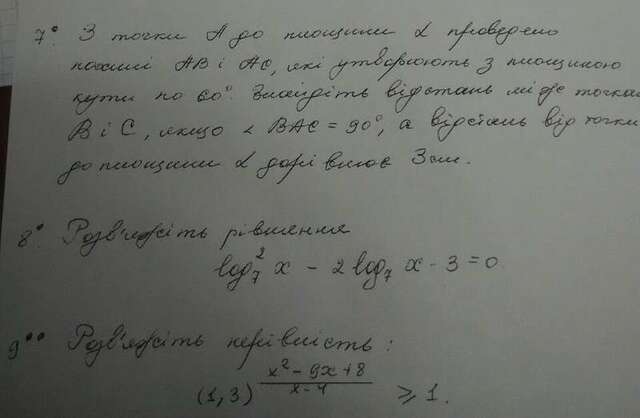 7° З точки А до площини α проведено
похилі АВ і АС, які утворюють з площиною
кути по 60°. Знайдіть відстань між точками
В і С, якщо ∠ ВАС = 90°, а відстань від точки
до площини α дорівнює 3 см.
8°. Розв'яжіть рівняння
log₇² x - 2 log₇ x - 3 = 0
9°° Розв'яжіть нерівність:
(1,3)^((x² - 9x + 8)/(x - 4)) ⩾ 1.